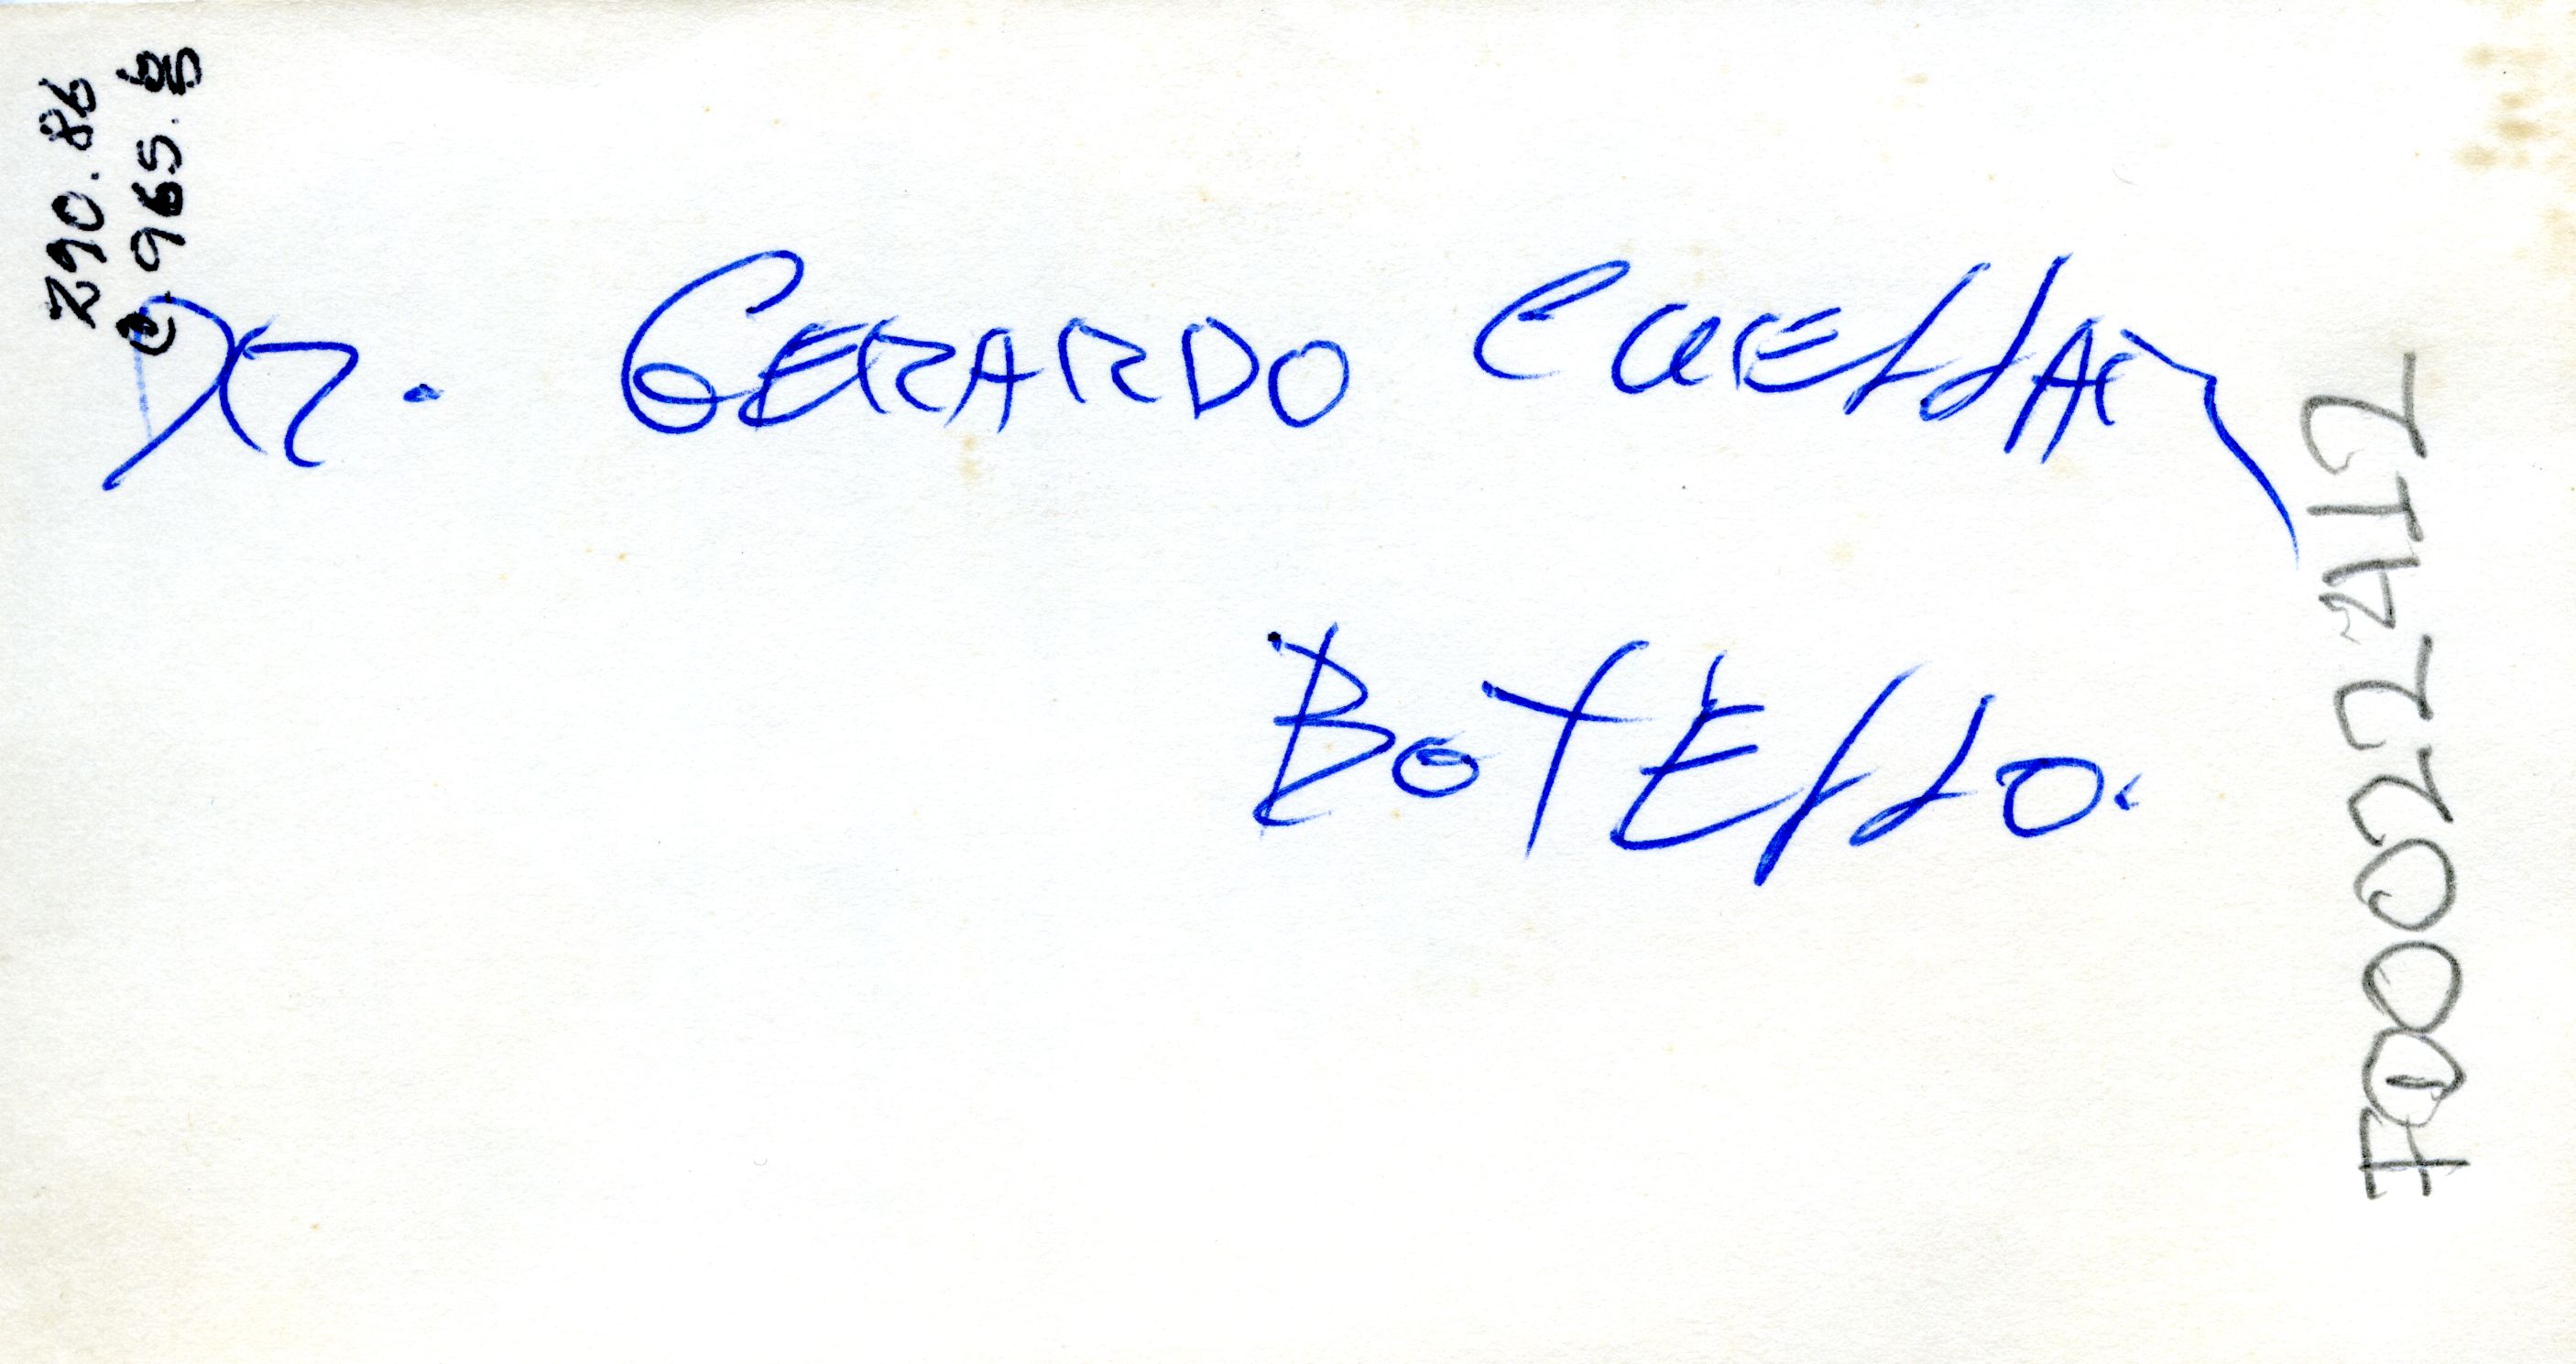 290.86
DR. GERARDO CUELLAR
BOTELLO.
FD0022412